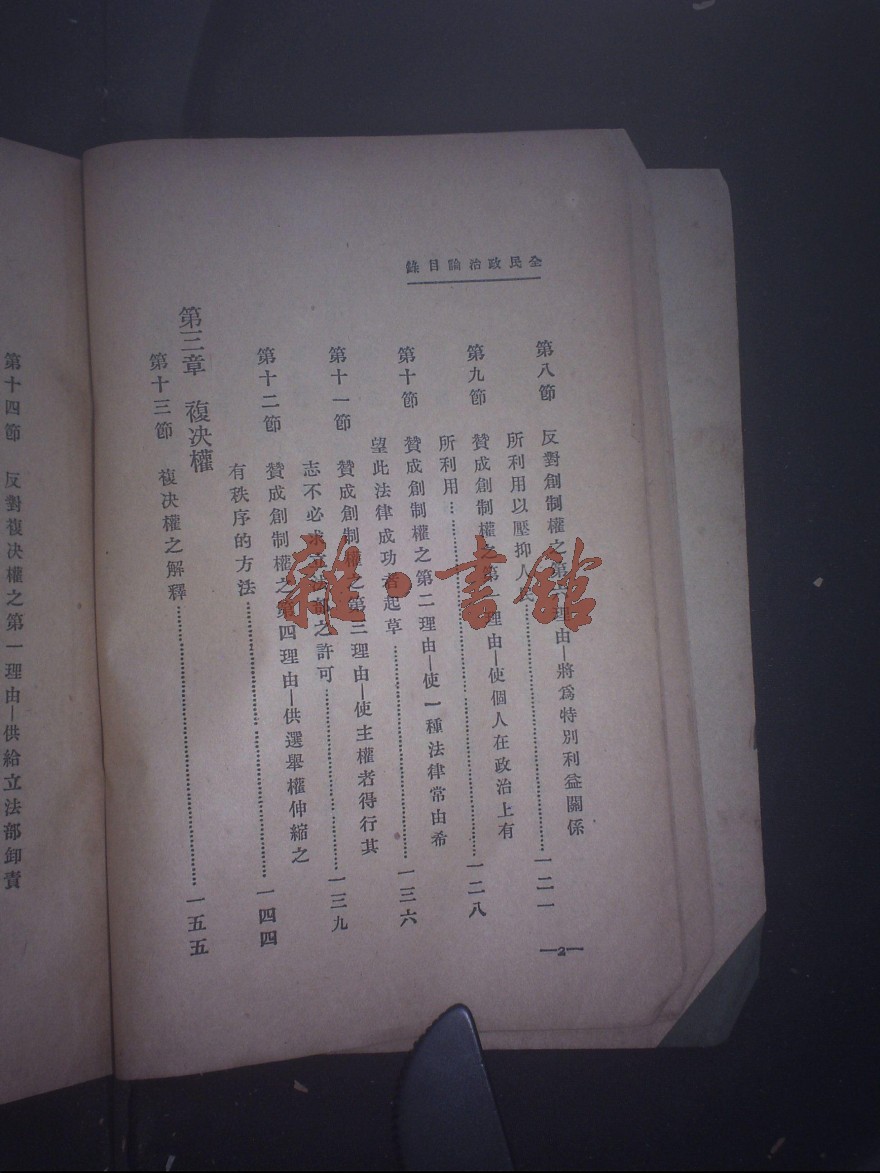 全民政治論目錄
第八節　反對創制權之第　理由—將爲特別利益關係
所利用以壓抑人　⋯⋯一二一
第九節　贊成創制權之第一理由—使個人在政治上有
所利用⋯⋯一二八
第十節　贊成創制權之第二理由—使一種法律常由希
望此法律成功者起草⋯⋯一三六
第十一節　贊成創制權之第三理由—使主權者得行其
志不必求立法部之許可⋯⋯一三九
第十二節　贊成創制權之第四理由—供選舉權伸縮之
有秩序的方法⋯⋯一四四
第三章　複決權
第十三節　複決權之解釋⋯⋯一五五
—2—
第十四節　反對複決權之第一理由—供給立法部卸責
雜·書館